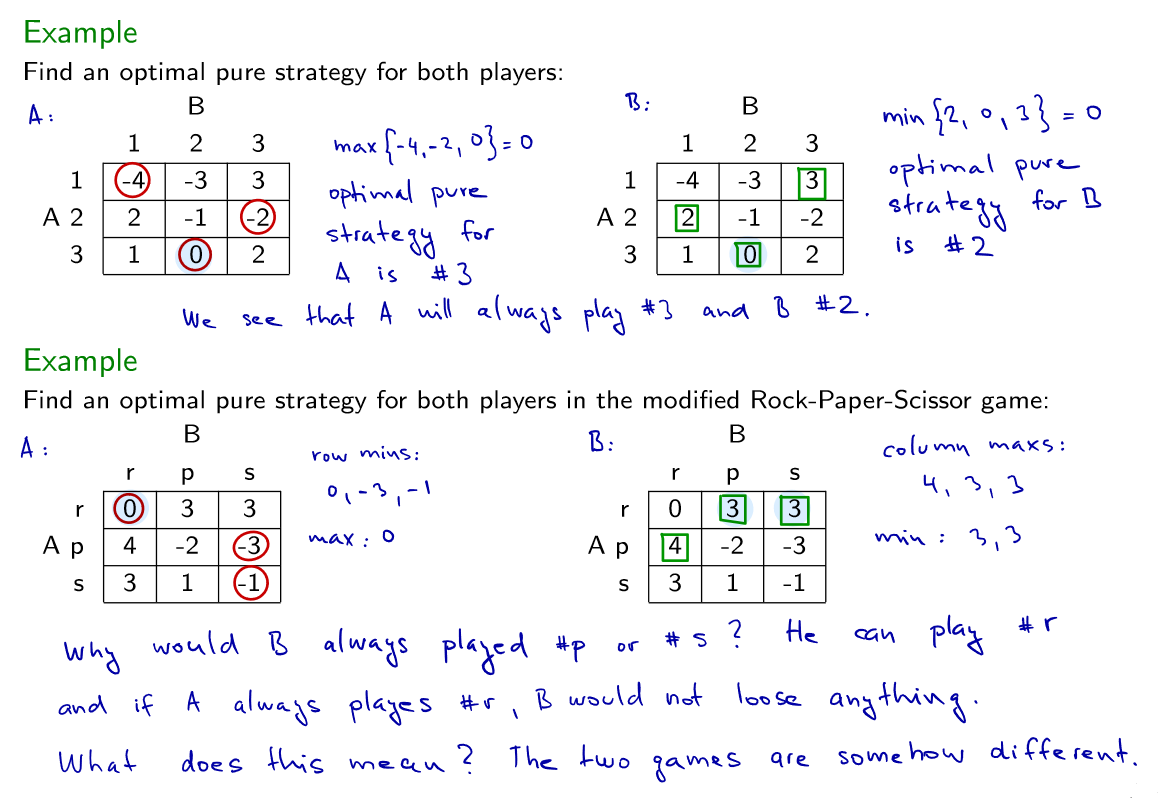 Example
Find an optimal pure strategy for both players:
A: B
1 2 3
1 -4 -3 3
A 2 2 -1 -2
3 1 0 2
max{-4,-2, 0}=0
optimal pure
strategy for
A is #3
B: B
1 2 3
1 -4 -3 3
A 2 2 -1 -2
3 1 0 2
min {2, 0, 3} = 0
optimal pure
strategy for B
is #2
We see that A will always play #3 and B #2.
Example
Find an optimal pure strategy for both players in the modified Rock-Paper-Scissor game:
A: B
r p s
r 0 3 3
A p 4 -2 -3
s 3 1 -1
row mins:
0, -3, -1
max: 0
B: B
r p s
r 0 3 3
A p 4 -2 -3
s 3 1 -1
column maxs:
4, 3, 3
min: 3,3
Why would B always played #p or #s? He can play #r
and if A always playes #r, B would not loose anything.
What does this mean? The two games are somehow different.